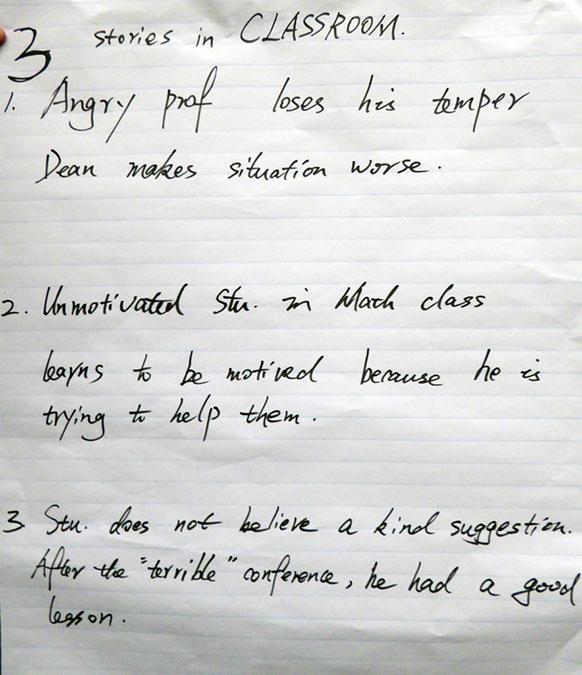 3 stories in CLASSROOM.
1. Angry prof loses his temper
Dean makes situation worse.
2. Unmotivated Stu. in Math class
learns to be motived because he is
trying to help them.
3. Stu. does not believe a kind suggestion.
After the "terrible" conference, he had a good
lesson.